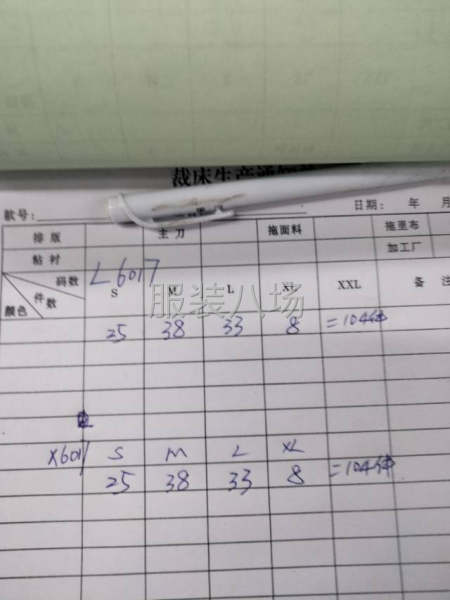 裁床生产通知单
款号： 日期： 年 月
排版 主刀 拖面料 拖里布
粘衬 加工厂
L6017
颜色 件数 码数 S M L XL XXL 备注
服装八场
25 38 33 8 =104件
X6011 S M L XL
25 38 33 8 =104件